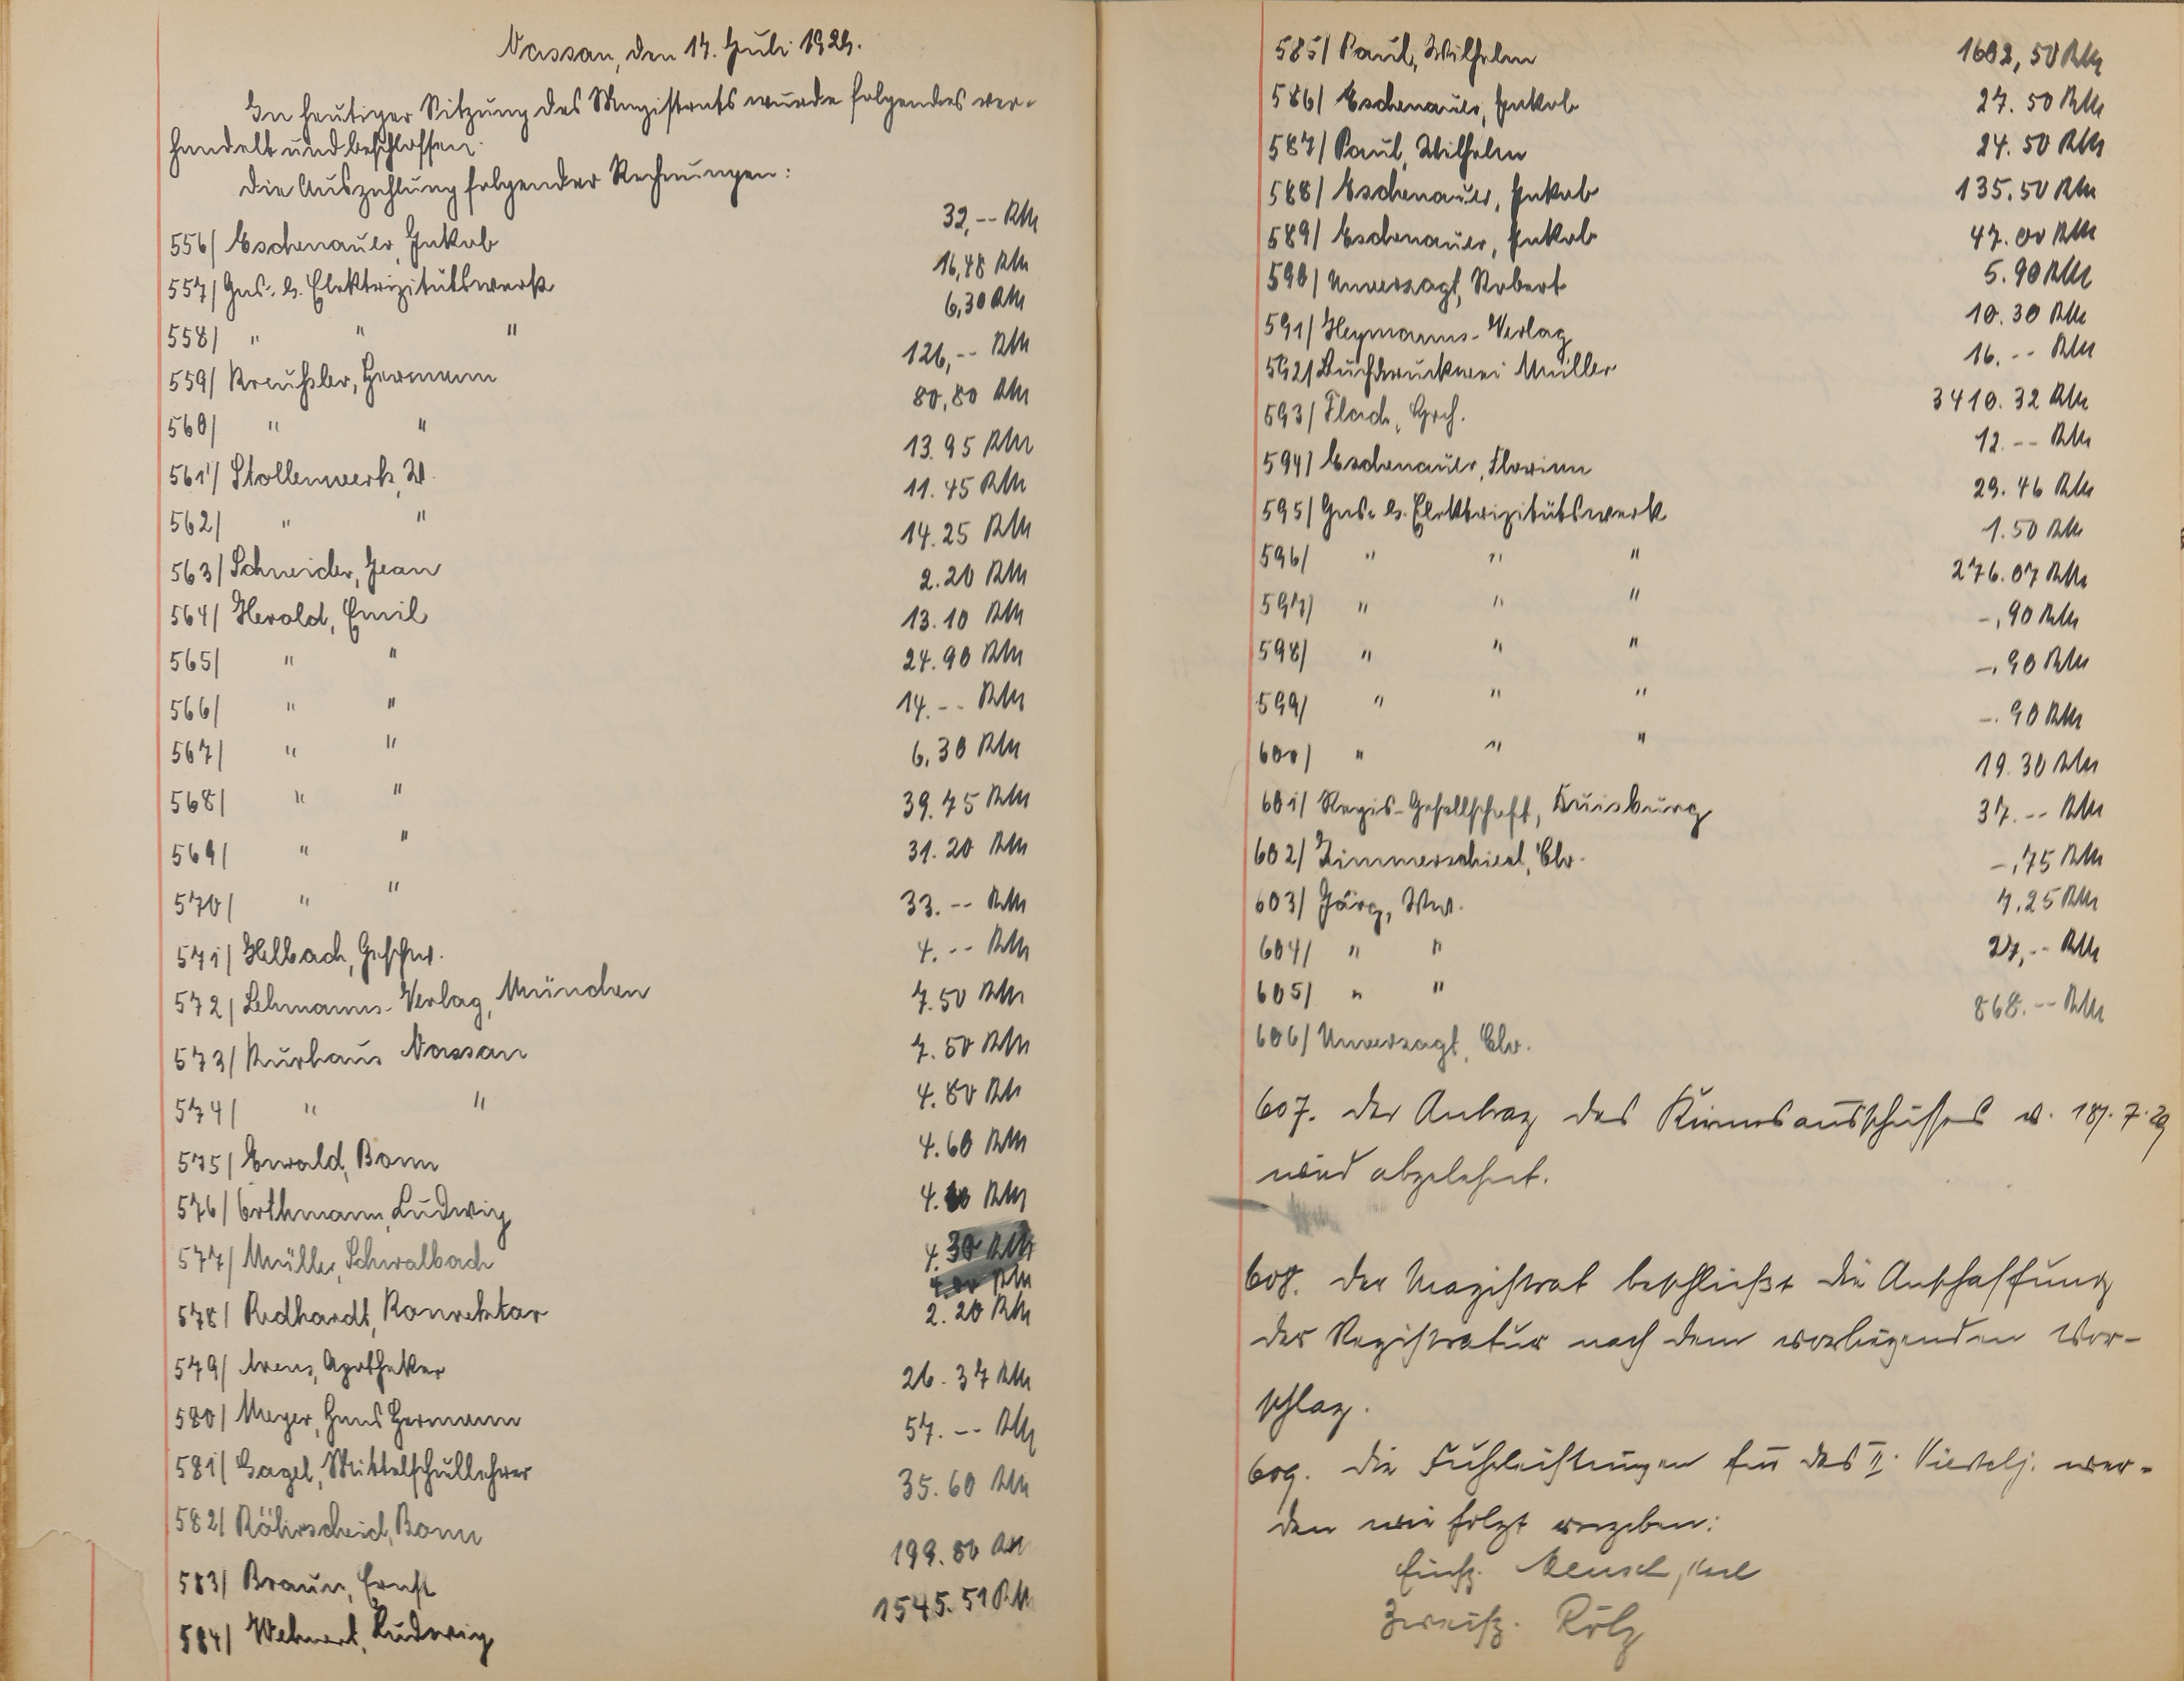 Nassau, den 17. Juli 1929.
In heutiger Sitzung des Magistrats wurde folgendes ver-
handelt und beschlossen.
Die Auszahlung folgender Rechnungen:
556/ Eschenauer, Jakob 32,-- RM
557/ Gas- & Elektrizitätswerk 16,48 RM
558/ " " " 6,30 RM
559/ Kreußler, Hermann 126,-- RM
560/ " " 80,80 RM
561/ Stollenwerk, W. 13.95 RM
562/ " " 11.45 RM
563/ Schneider, Jean 14.25 RM
564/ Herold, Emil 2.20 RM
565/ " " 13.10 RM
566/ " " 24.90 RM
567/ " " 14.-- RM
568/ " " 6,30 RM
569/ " " 39.75 RM
570/ " " 31.20 RM
571/ Helbach, Geschw. 33.-- RM
572/ Lehmanns-Verlag, München 4.-- RM
573/ Kurhaus Nassau 7.50 RM
574/ " " 7.50 RM
575/ Ewald, Bonn 4.80 RM
576/ Orthmann, Ludwig 4.60 RM
577/ Müller, Schwalbach 4. RM
578/ Redhardt, Konrektor 4.30 RM
579/ Arens, Apotheker 2.20 RM
580/ Meyer, Hans Hermann 26.37 RM
581/ Gagel, Mittelschullehrer 57.-- RM
582/ Röhrscheid, Bonn 35.60 RM
583/ Braun, Ernst 199.80 RM
584/ Wehnert, Ludwig 1545.51 RM
585/ Paul, Wilhelm 1602,50 RM
586/ Eschenauer, Jakob 27.50 RM
587/ Paul, Wilhelm 24.50 RM
588/ Eschenauer, Jakob 135.50 RM
589/ Eschenauer, Jakob 47.00 RM
590/ Unverzagt, Robert 5.90 RM
591/ Heymanns-Verlag 10.30 RM
592/ Buchdruckerei Müller 16.-- RM
593/ Flach, Grch. 3410.32 RM
594/ Eschenauer, Florian 12.-- RM
595/ Gas- & Elektrizitätswerk 29.46 RM
596/ " " " 1.50 RM
597/ " " " 276.07 RM
598/ " " " -,90 RM
599/ " " " -,90 RM
600/ " " " -.90 RM
601/ Regis-Gesellschaft, Duisburg 19.30 RM
602/ Zimmerschied, Chr. 37.-- RM
603/ Jörg, Ww. -,75 RM
604/ " " 7,25 RM
605/ " " 27,-- RM
606/ Unverzagt, Chr. 868.-- RM
607. Der Antrag des Kirmesausschusses v. 17.7.29
wird abgelehnt.
608. Der Magistrat beschließt die Anschaffung
der Registratur nach dem vorliegenden Vor-
schlag.
609. Die Fuhrleistungen für das II. Viertelj. wer-
den wie folgt vergeben:
Einsp. Mensch, Karl
Zweisp. Rölz